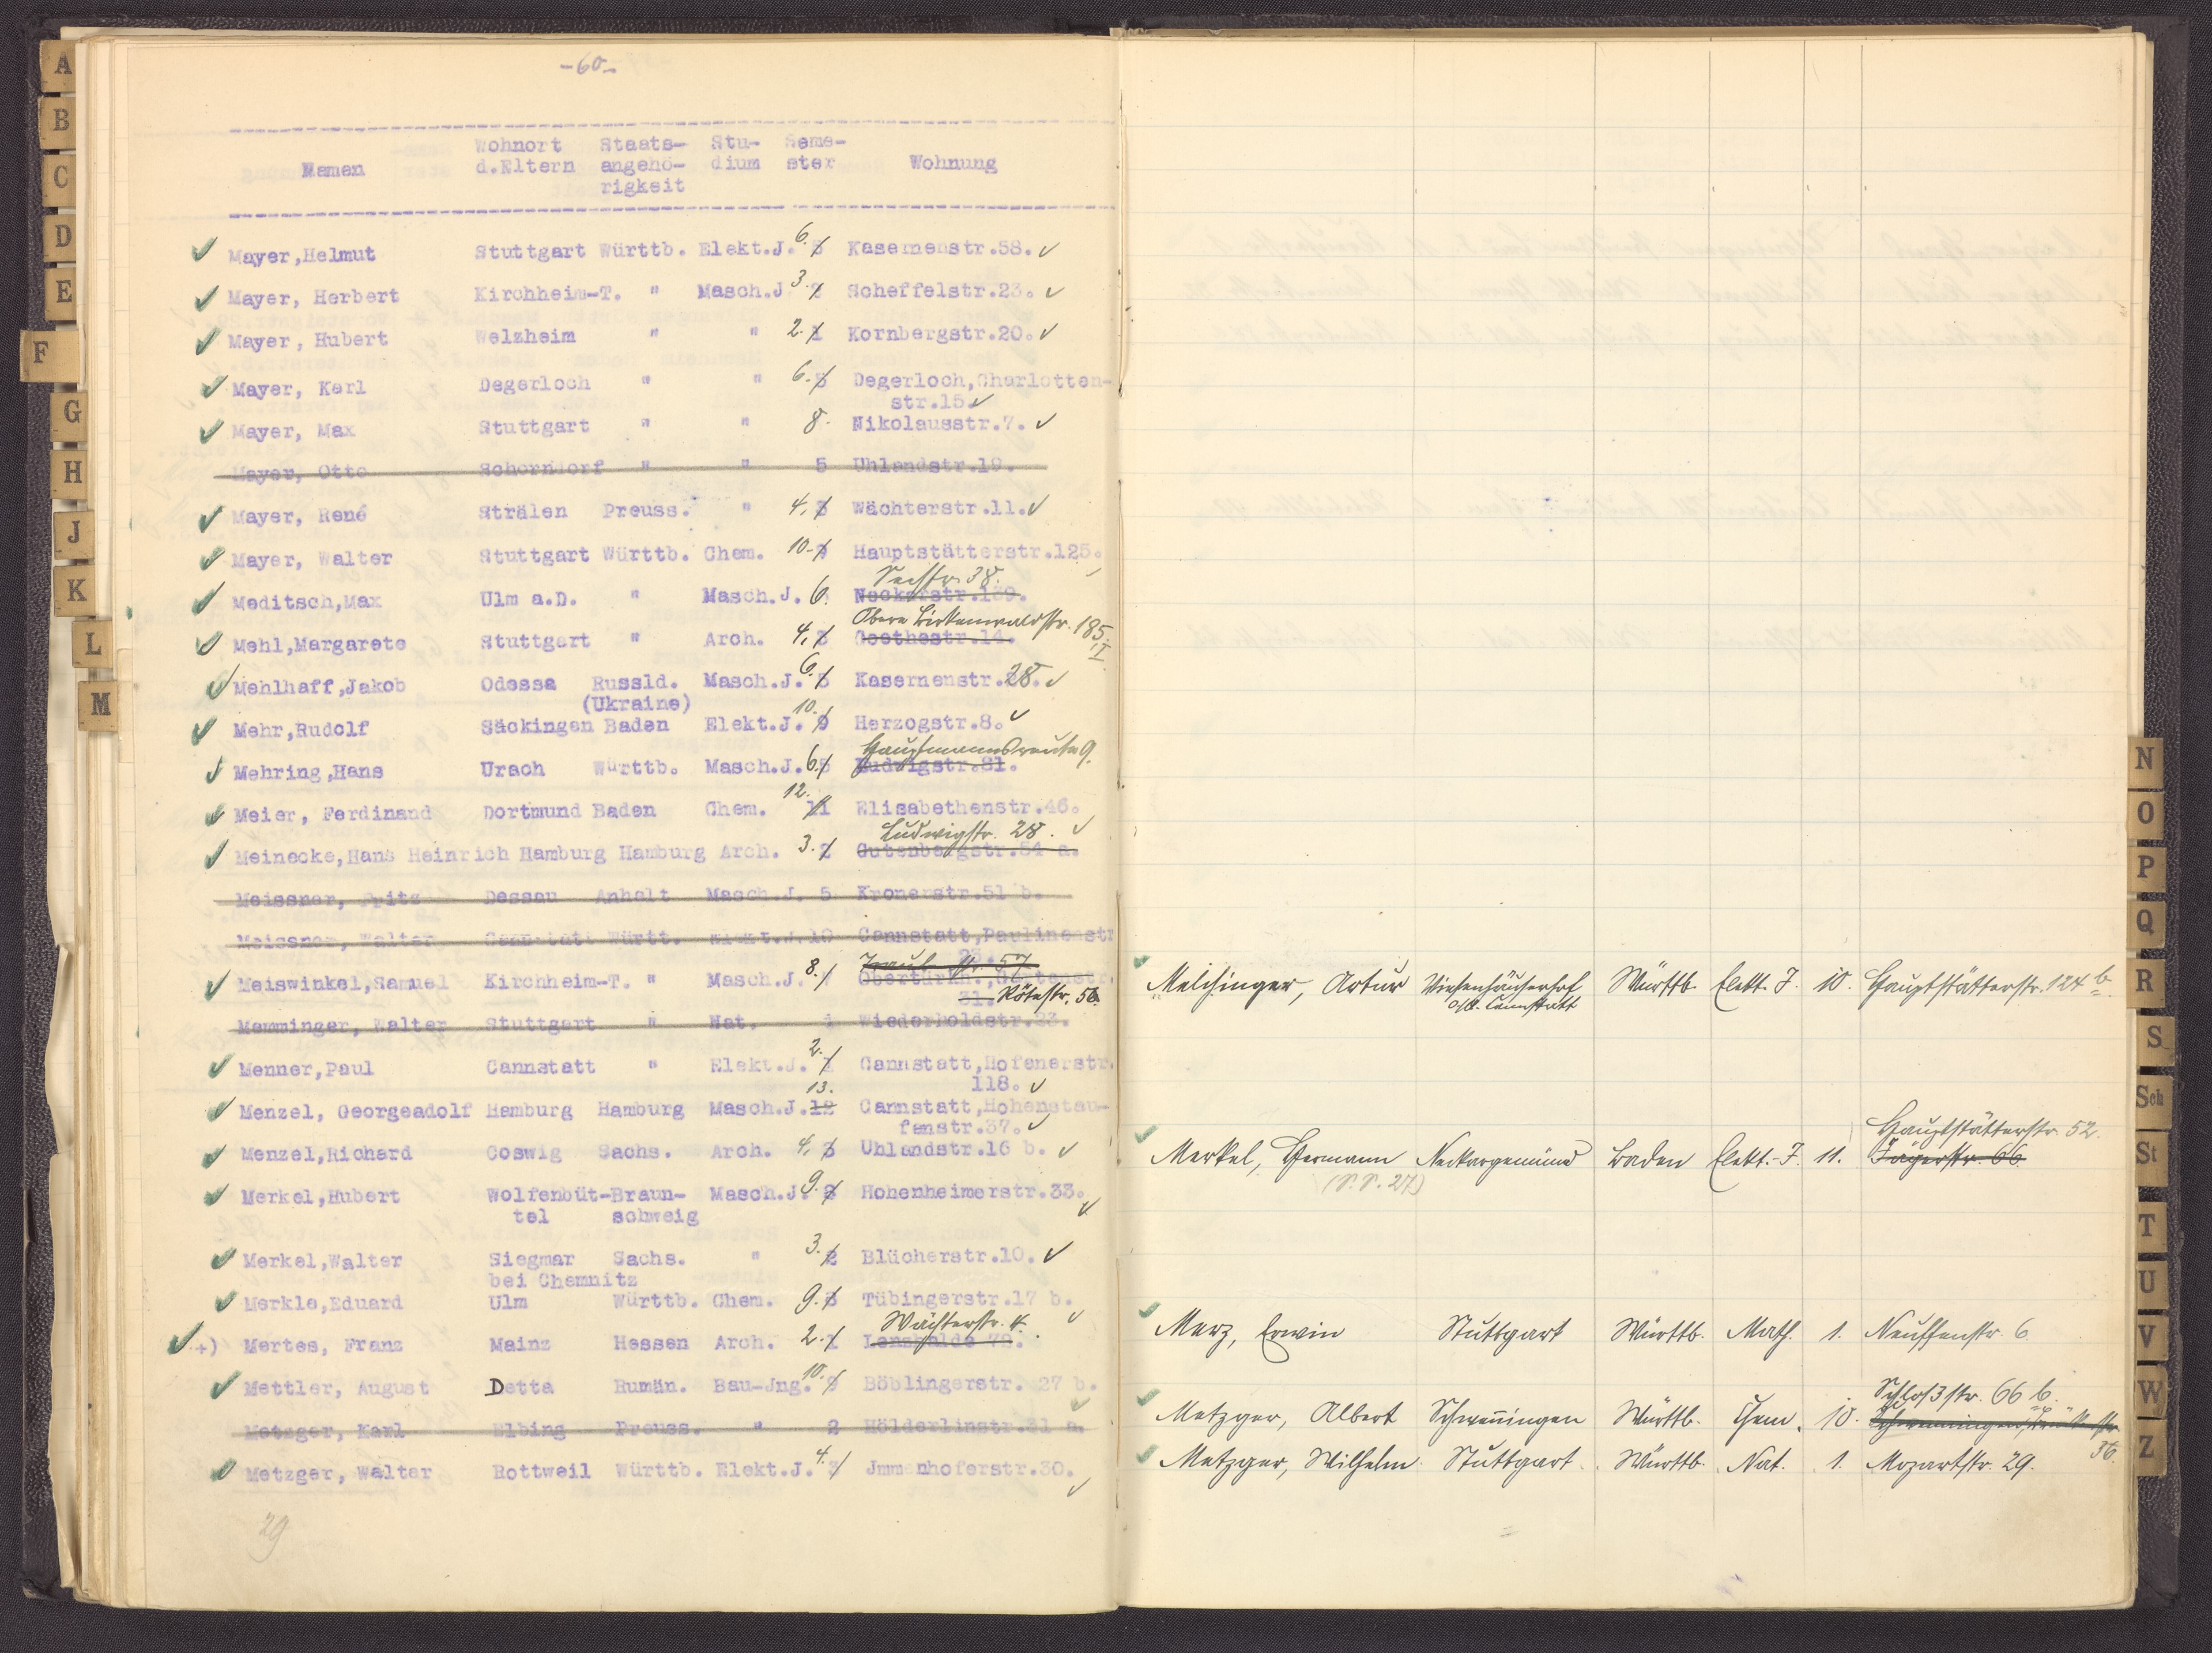 -60-
Wohnort Staats- Stu- Seme-
Namen d.Eltern angehö- dium ster Wohnung
rigkeit
Mayer,Helmut Stuttgart Württb. Elekt.J. 6. 5 Kasernenstr.58.
Mayer, Herbert Kirchheim-T. " Masch.J 3. 2 Scheffelstr.23.
Mayer, Hubert Welzheim " " 2. 1 Kornbergstr.20.
Mayer, Karl Degerloch " " 6. 5 Degerloch,Charlotten-
str.15.
Mayer, Max Stuttgart " " 8. Nikolausstr.7.
Mayer, Otto Schorndorf " " 5 Uhlandstr.19.
Mayer, René Strälen Preuss. " 4. 3 Wächterstr.11.
Mayer, Walter Stuttgart Württb. Chem. 10. Hauptstätterstr.125.
Seestr. 38.
Meditsch,Max Ulm a.D. " Masch.J. 6. Neckarstr.139.
Obere Birkenwaldstr. 185.
Mehl,Margarete Stuttgart " Arch. 4. 3 Goethestr.14. I
Mehlhaff,Jakob Odessa Russld. Masch.J. 6. 5 Kasernenstr.28.
(Ukraine)
Mehr,Rudolf Säckingen Baden Elekt.J. 10. 9 Herzogstr.8.
Hauptmannsreute 9.
Mehring,Hans Urach Württb. Masch.J. 6. 5 Ludwigstr.81.
Meier, Ferdinand Dortmund Baden Chem. 12. 11 Elisabethenstr.46.
Ludwigstr. 28.
Meinecke,Hans Heinrich Hamburg Hamburg Arch. 3. 2 Gutenbergstr.54 a.
Meissner, Fritz Dessau Anhalt Masch.J. 5 Kronenstr.51 b.
Meissner, Walter Cannstatt Württ. Elekt.J.10 Cannstatt,Paulinenstr
23.
Meiswinkel,Samuel Kirchheim-T. " Masch.J. 8. Obertürkh.,Gartenstr.
31 Rötestr. 56.
Memminger, Walter Stuttgart " Nat. 1 Wiederholdstr.23.
Menner,Paul Cannstatt " Elekt.J. 2. 1 Cannstatt,Hofenerstr.
118.
Menzel, Georgeadolf Hamburg Hamburg Masch.J. 13. 12 Cannstatt,Hohenstau-
fenstr.37.
Menzel,Richard Coswig Sachs. Arch. 4. 3 Uhlandstr.16 b.
Merkel,Hubert Wolfenbüt-Braun- Masch.J. 9. 8 Hohenheimerstr.33.
tel schweig
Merkel,Walter Siegmar Sachs. " 3. 2 Blücherstr.10.
bei Chemnitz
Merkle,Eduard Ulm Württb. Chem. 9. 8 Tübingerstr.17 b.
Wächterstr. 4.
+) Mertes, Franz Mainz Hessen Arch. 2. 1 Lenzhalde 72.
Mettler, August Detta Rumän. Bau-Jng. 10. 9 Böblingerstr. 27 b.
Metzger, Karl Elbing Preuss. " 2 Hölderlinstr.31 a.
Metzger, Walter Rottweil Württb. Elekt.J. 4. 3 Jmmenhoferstr.30.
29
Melchinger, Artur Viesenhäuserhof Württb. Elekt. J. 10. Hauptstätterstr. 124 b.
O/A. Cannstatt
Hauptstätterstr. 52.
Merkel, Hermann Neckargemünd Baden Elekt.-J. 11. Jägerstr. 66
(S.S. 27)
Merz, Erwin Stuttgart Württb. Math. 1. Neuffenstr. 6.
Schloßstr. 66 b.
Metzger, Albert Schwenningen Württb. Chem. 10. Schwenningen,
36.
Metzger, Wilhelm Stuttgart Württb. Nat. 1. Mozartstr. 29.
A
B
C
D
E
F
G
H
J
K
L
M
N
O
P
Q
R
S
Sch
St
T
U
V
W
Z